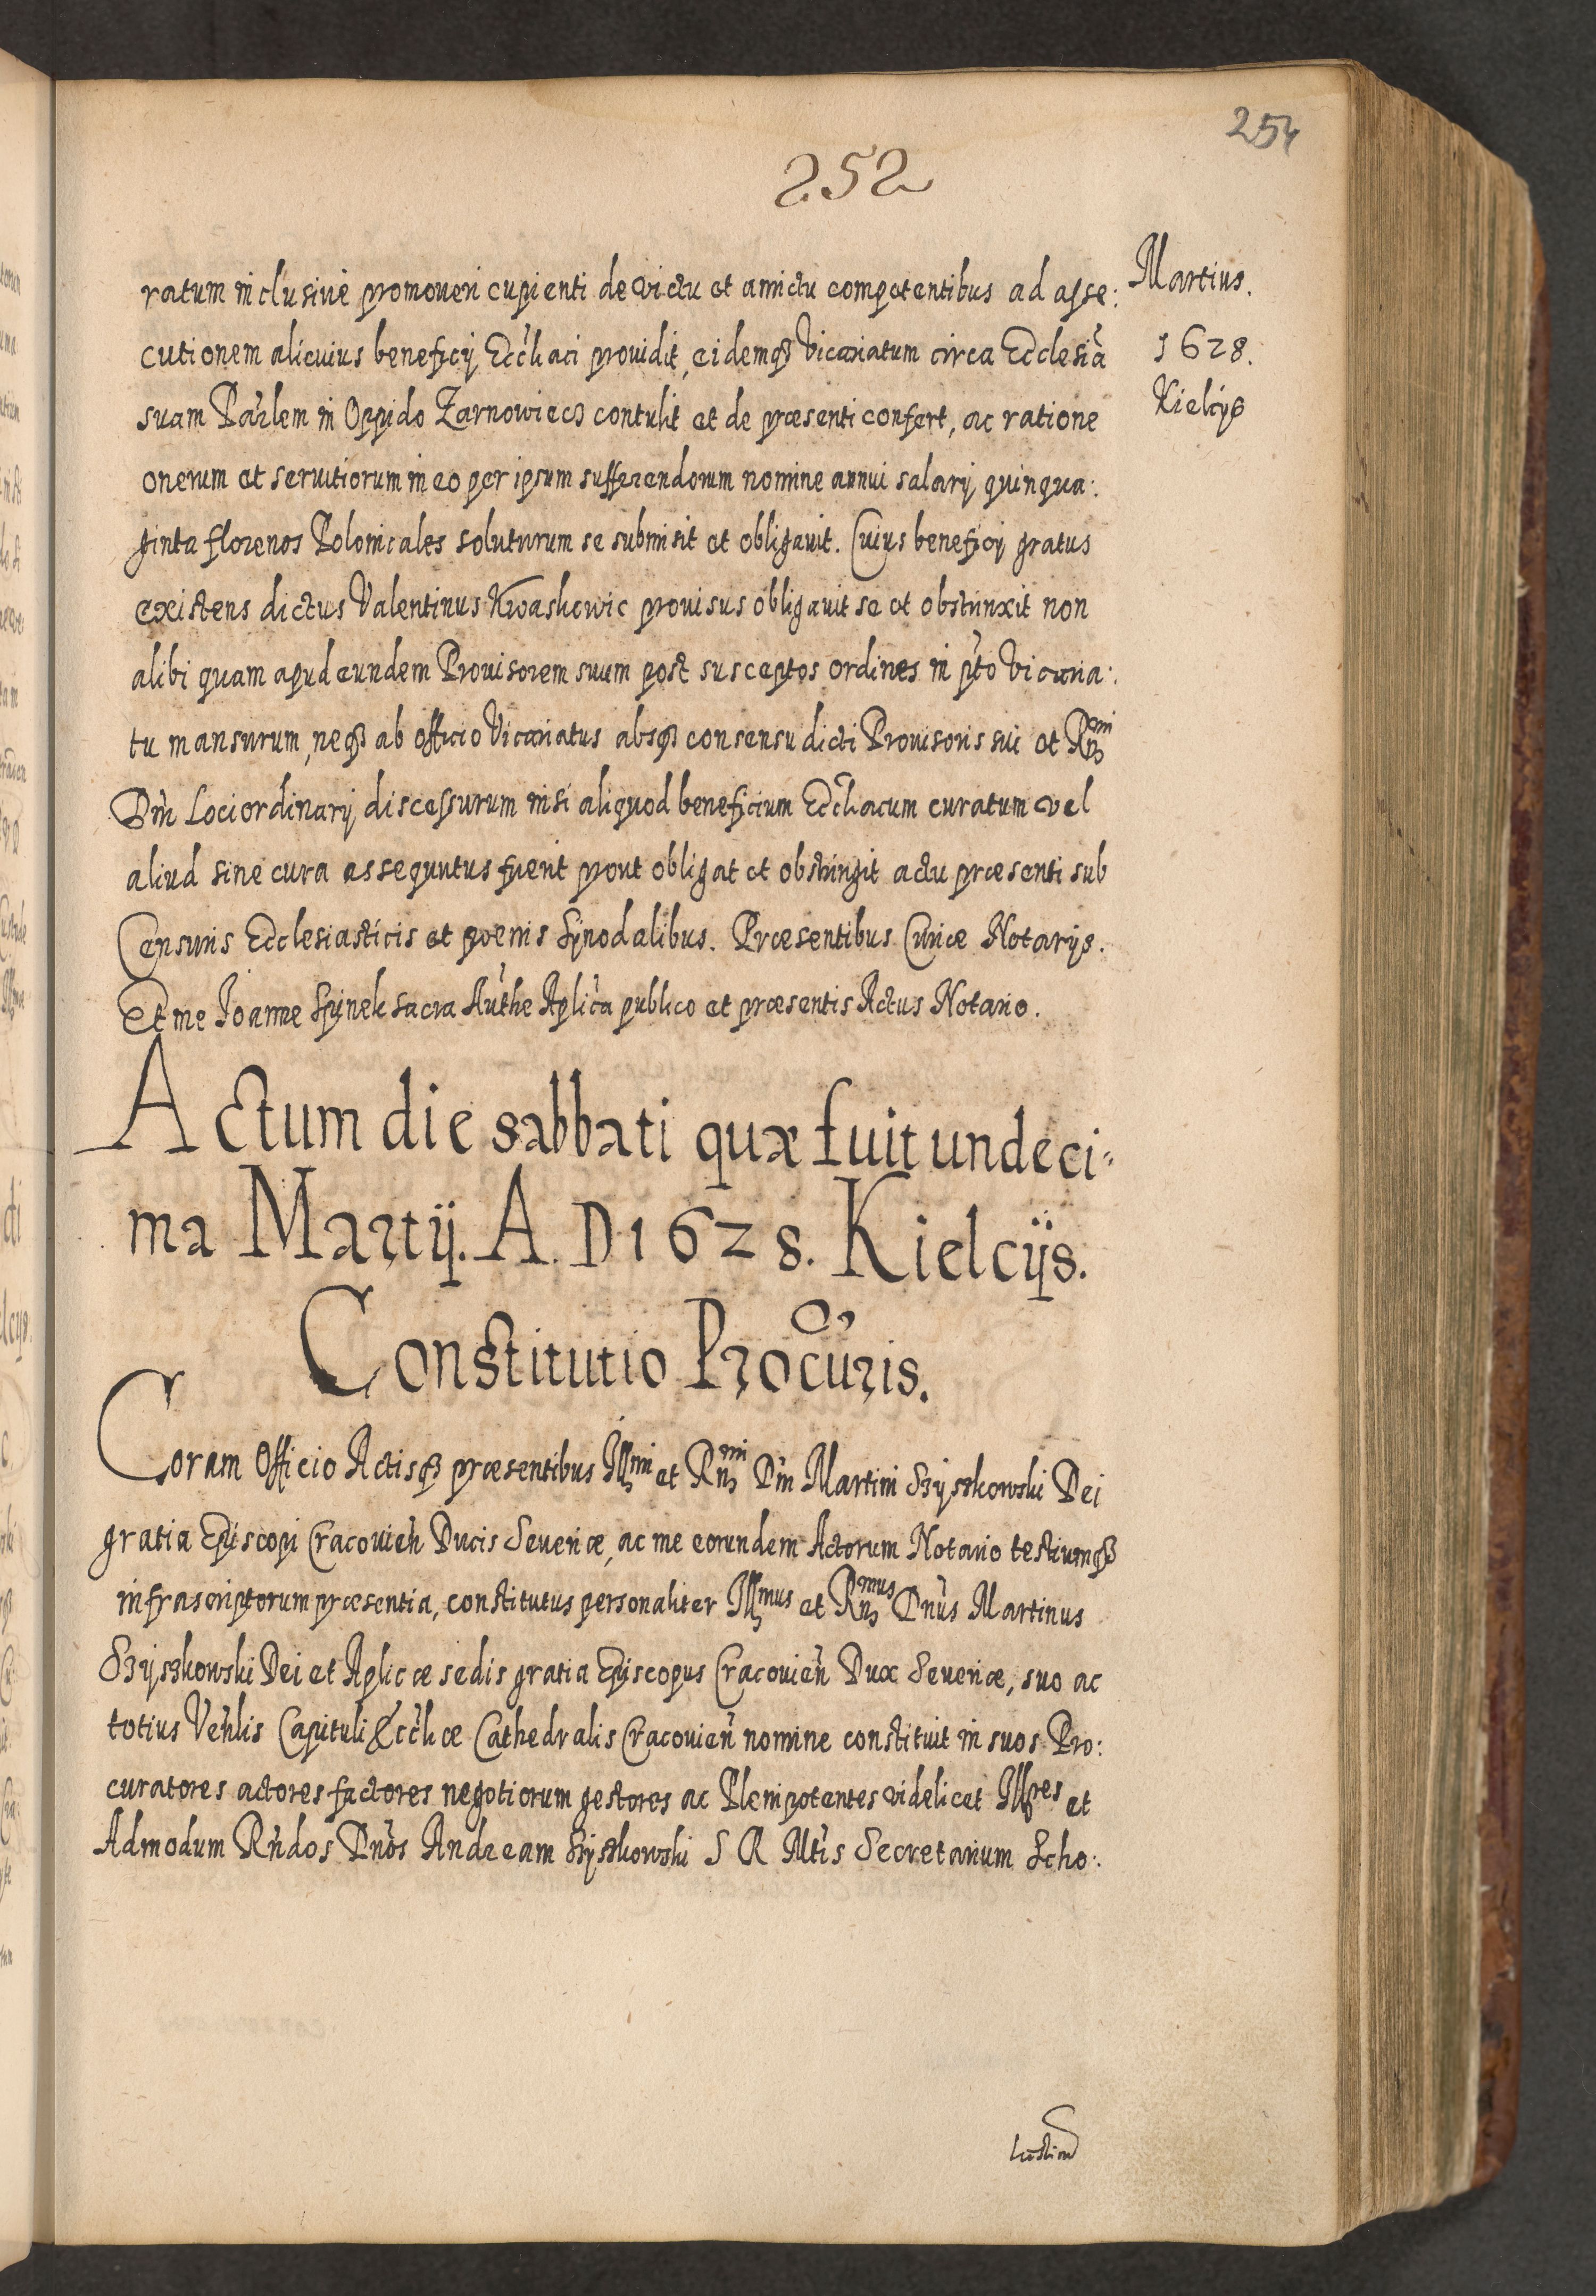 254
252
Martius.
1628.
Kielcijs
ratum inclusiuè promoueri cupienti de victu et amictu competentibus ad asse:
cutionem alicuius beneficij Eccl̃iaci prouidit, eidemq3 Vicariatum circa Ecclesiã
suam Par̃lem in Oppido Zarnowiec contulit et de præsenti confert, ac ratione
onerum et seruitiorum in eo per ipsum sufferendorum nomine annui salarij quinqua:
ginta florenos Polonicales soluturum se submisit et obligauit. Cuius beneficij gratus
existens dictus Valentinus Kwaskowic prouisus obligauit se et obstrinxit non
alibi quam apud eundem Prouisorem suum post susceptos ordines in p̃to Vicaria:
tu mansurum, neq3 ab officio Vicariatus absq3 consensu dicti Prouisoris sui et Rn̄mi
Dn̄i Loci ordinarij discessurum nisi aliquod beneficium Eccl̃iacum curatum vel
aliud sine cura assequutus fuerit prout obligat et obstringit actu præsenti sub
Censuris Ecclesiasticis et poenis Synodalibus. Præsentibus Curiæ Notarijs.
Et me Joanne Spinek sacra Aut̃he Aplic̃a publico et præsentis Actus Notario.
Actum die sabbati quæ fuit undeci-
ma Martij. A. D 1628. Kielcijs.
Constitutio Procũris.
Coram Officio Actisq3 præsentibus Illmi et Rn̄mi Dn̄i Martini Szyszkowski Dei
gratia Episcopi Cracouień Ducis Seueriæ, ac me eorundem Actorum Notario testiumq3
infrascriptorum præsentia, constitutus personaliter Illmus et Rn̄mus Dn̄us Martinus
Szyszkowski Dei et Aplicæ sedis gratia Episcopus Cracouień Dux Seueriæ, suo ac
totius Veñlis Capituli Eccl̃iæ Cathedralis Cracouień nomine constituit in suos Pro:
curatores actores factores negotiorum gestores ac Plenipotentes videlicet Illres et
Admodum Rñdos Dños Andream Szyszkowski S R Mt̃is Secretarium Scho: